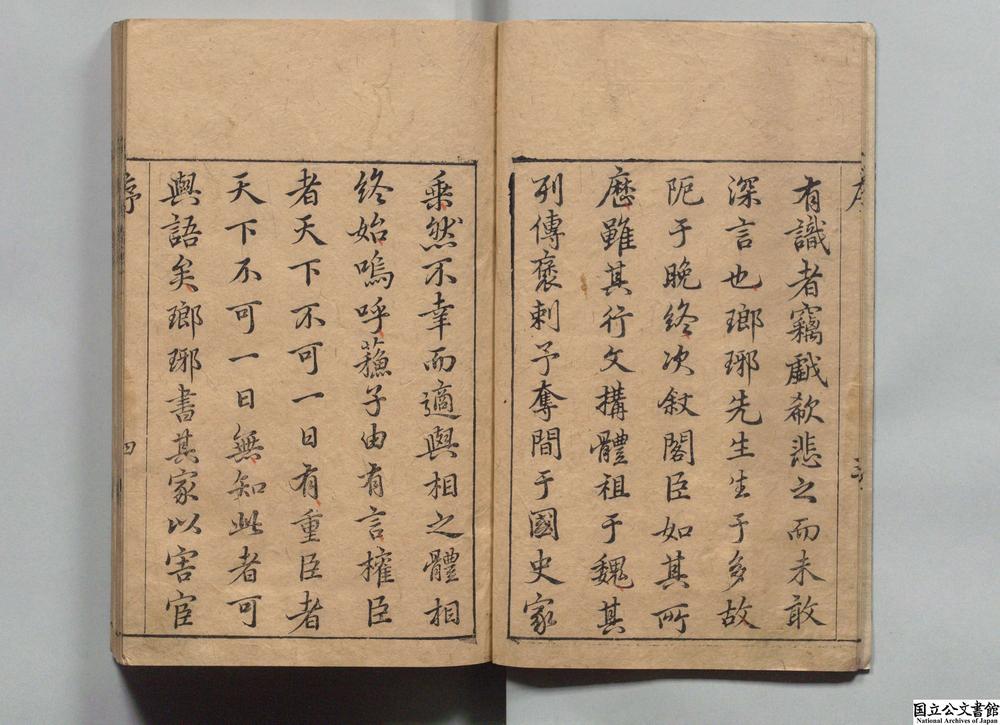 有識者竊戱欷悲之而未敢
深言也瑯琊先生生于多故
阨于晩終次敘閣臣如其所
歷雖其行文搆體祖于魏其
列傳褒刺予奪間于國史家
乗然不幸而適與相之體相
終始嗚呼蘓子由有言權臣
者天下不可一日有重臣者
天下不可一日無知此者可
與語矣瑯琊書其家以害宦
序
四
国立公文書館
National Archives of Japan